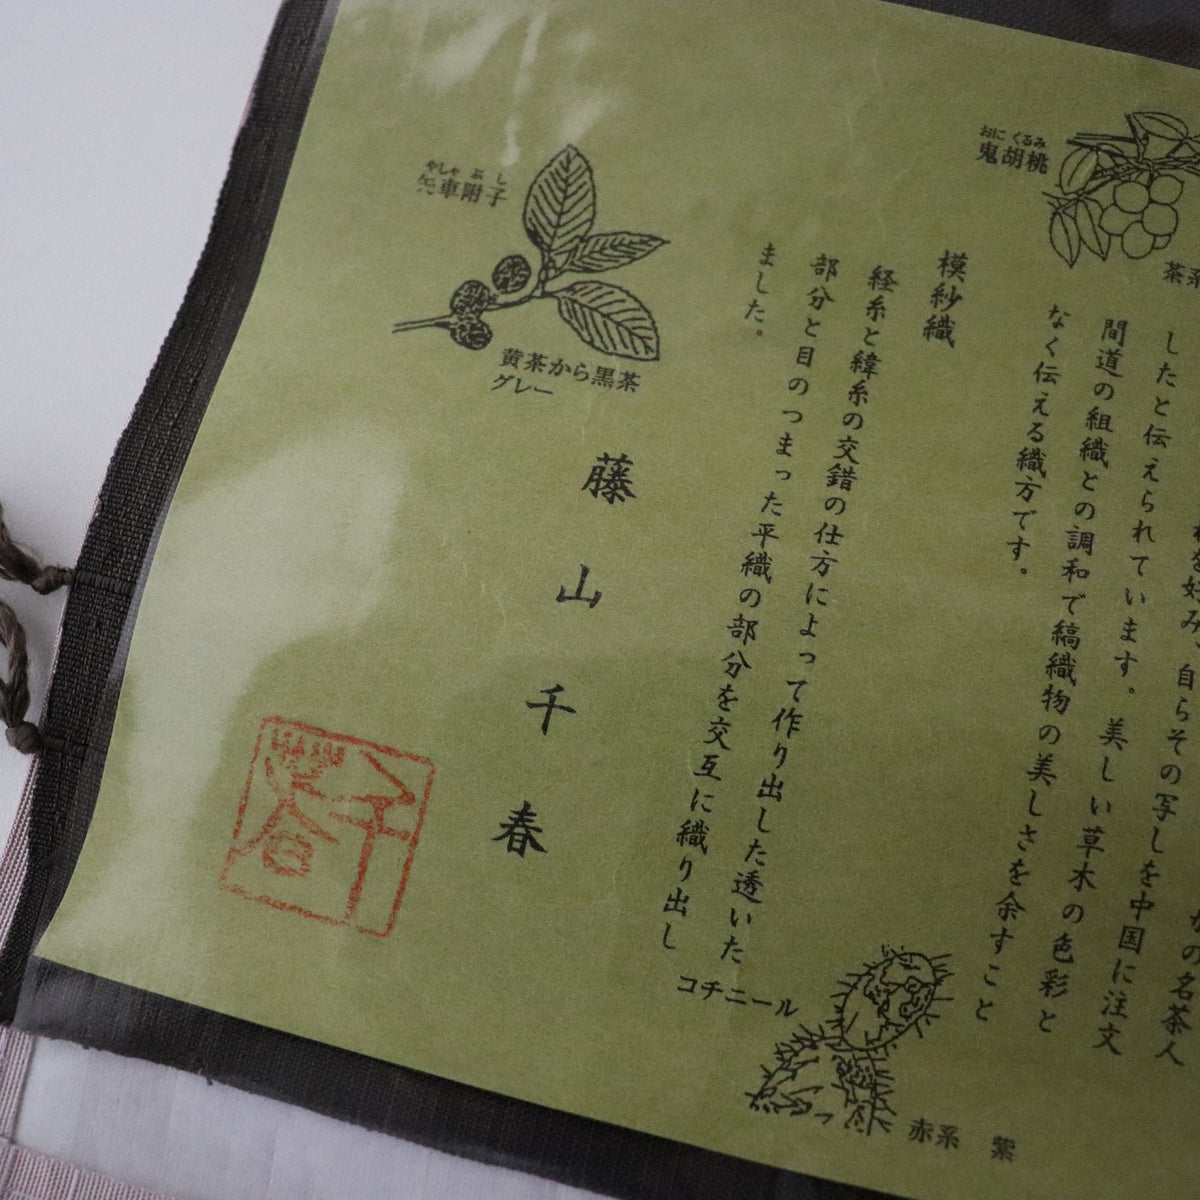 おにくるみ
鬼胡桃
茶系
を好み、自らその写しを中国に注文
の名茶人
したと伝えられています。美しい草木の色彩と
間道の組織との調和で縞織物の美しさを余すこと
なく伝える織方です。
模紗織
経糸と緯糸の交錯の仕方によって作り出した透いた
部分と目のつまった平織の部分を交互に織り出し
ました。
やしゃぶし
矢車附子
黄茶から黒茶
グレー
藤山千春
千春
コチニール
赤系 紫